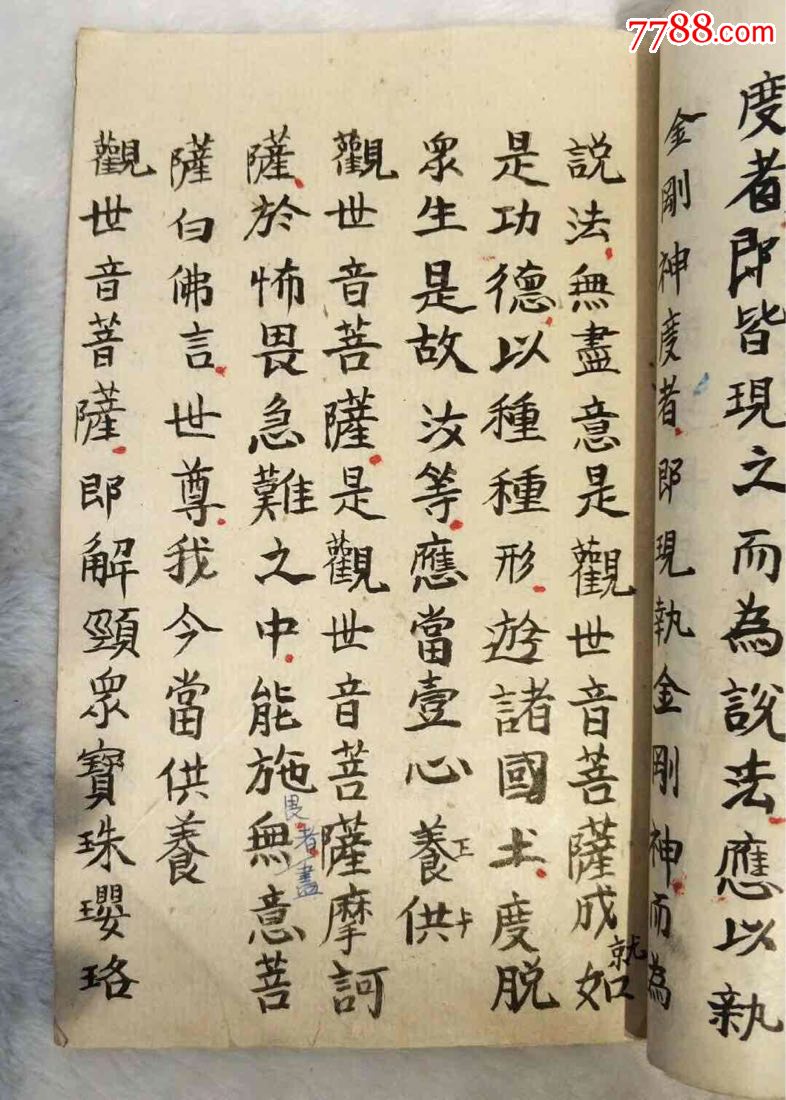 7788.com
度者即皆現之而為說法應以執
金剛神度者即現執金剛神而為
説法無盡意是觀世音菩薩成就如
是功德以種種形遊諸國土度脱
眾生是故汝等應當壹心養供
正
觀世音菩薩是觀世音菩薩摩訶
薩於怖畏急難之中能施無意菩
畏者盡
薩白佛言世尊我今當供養
觀世音菩薩即解頸眾寶珠瓔珞